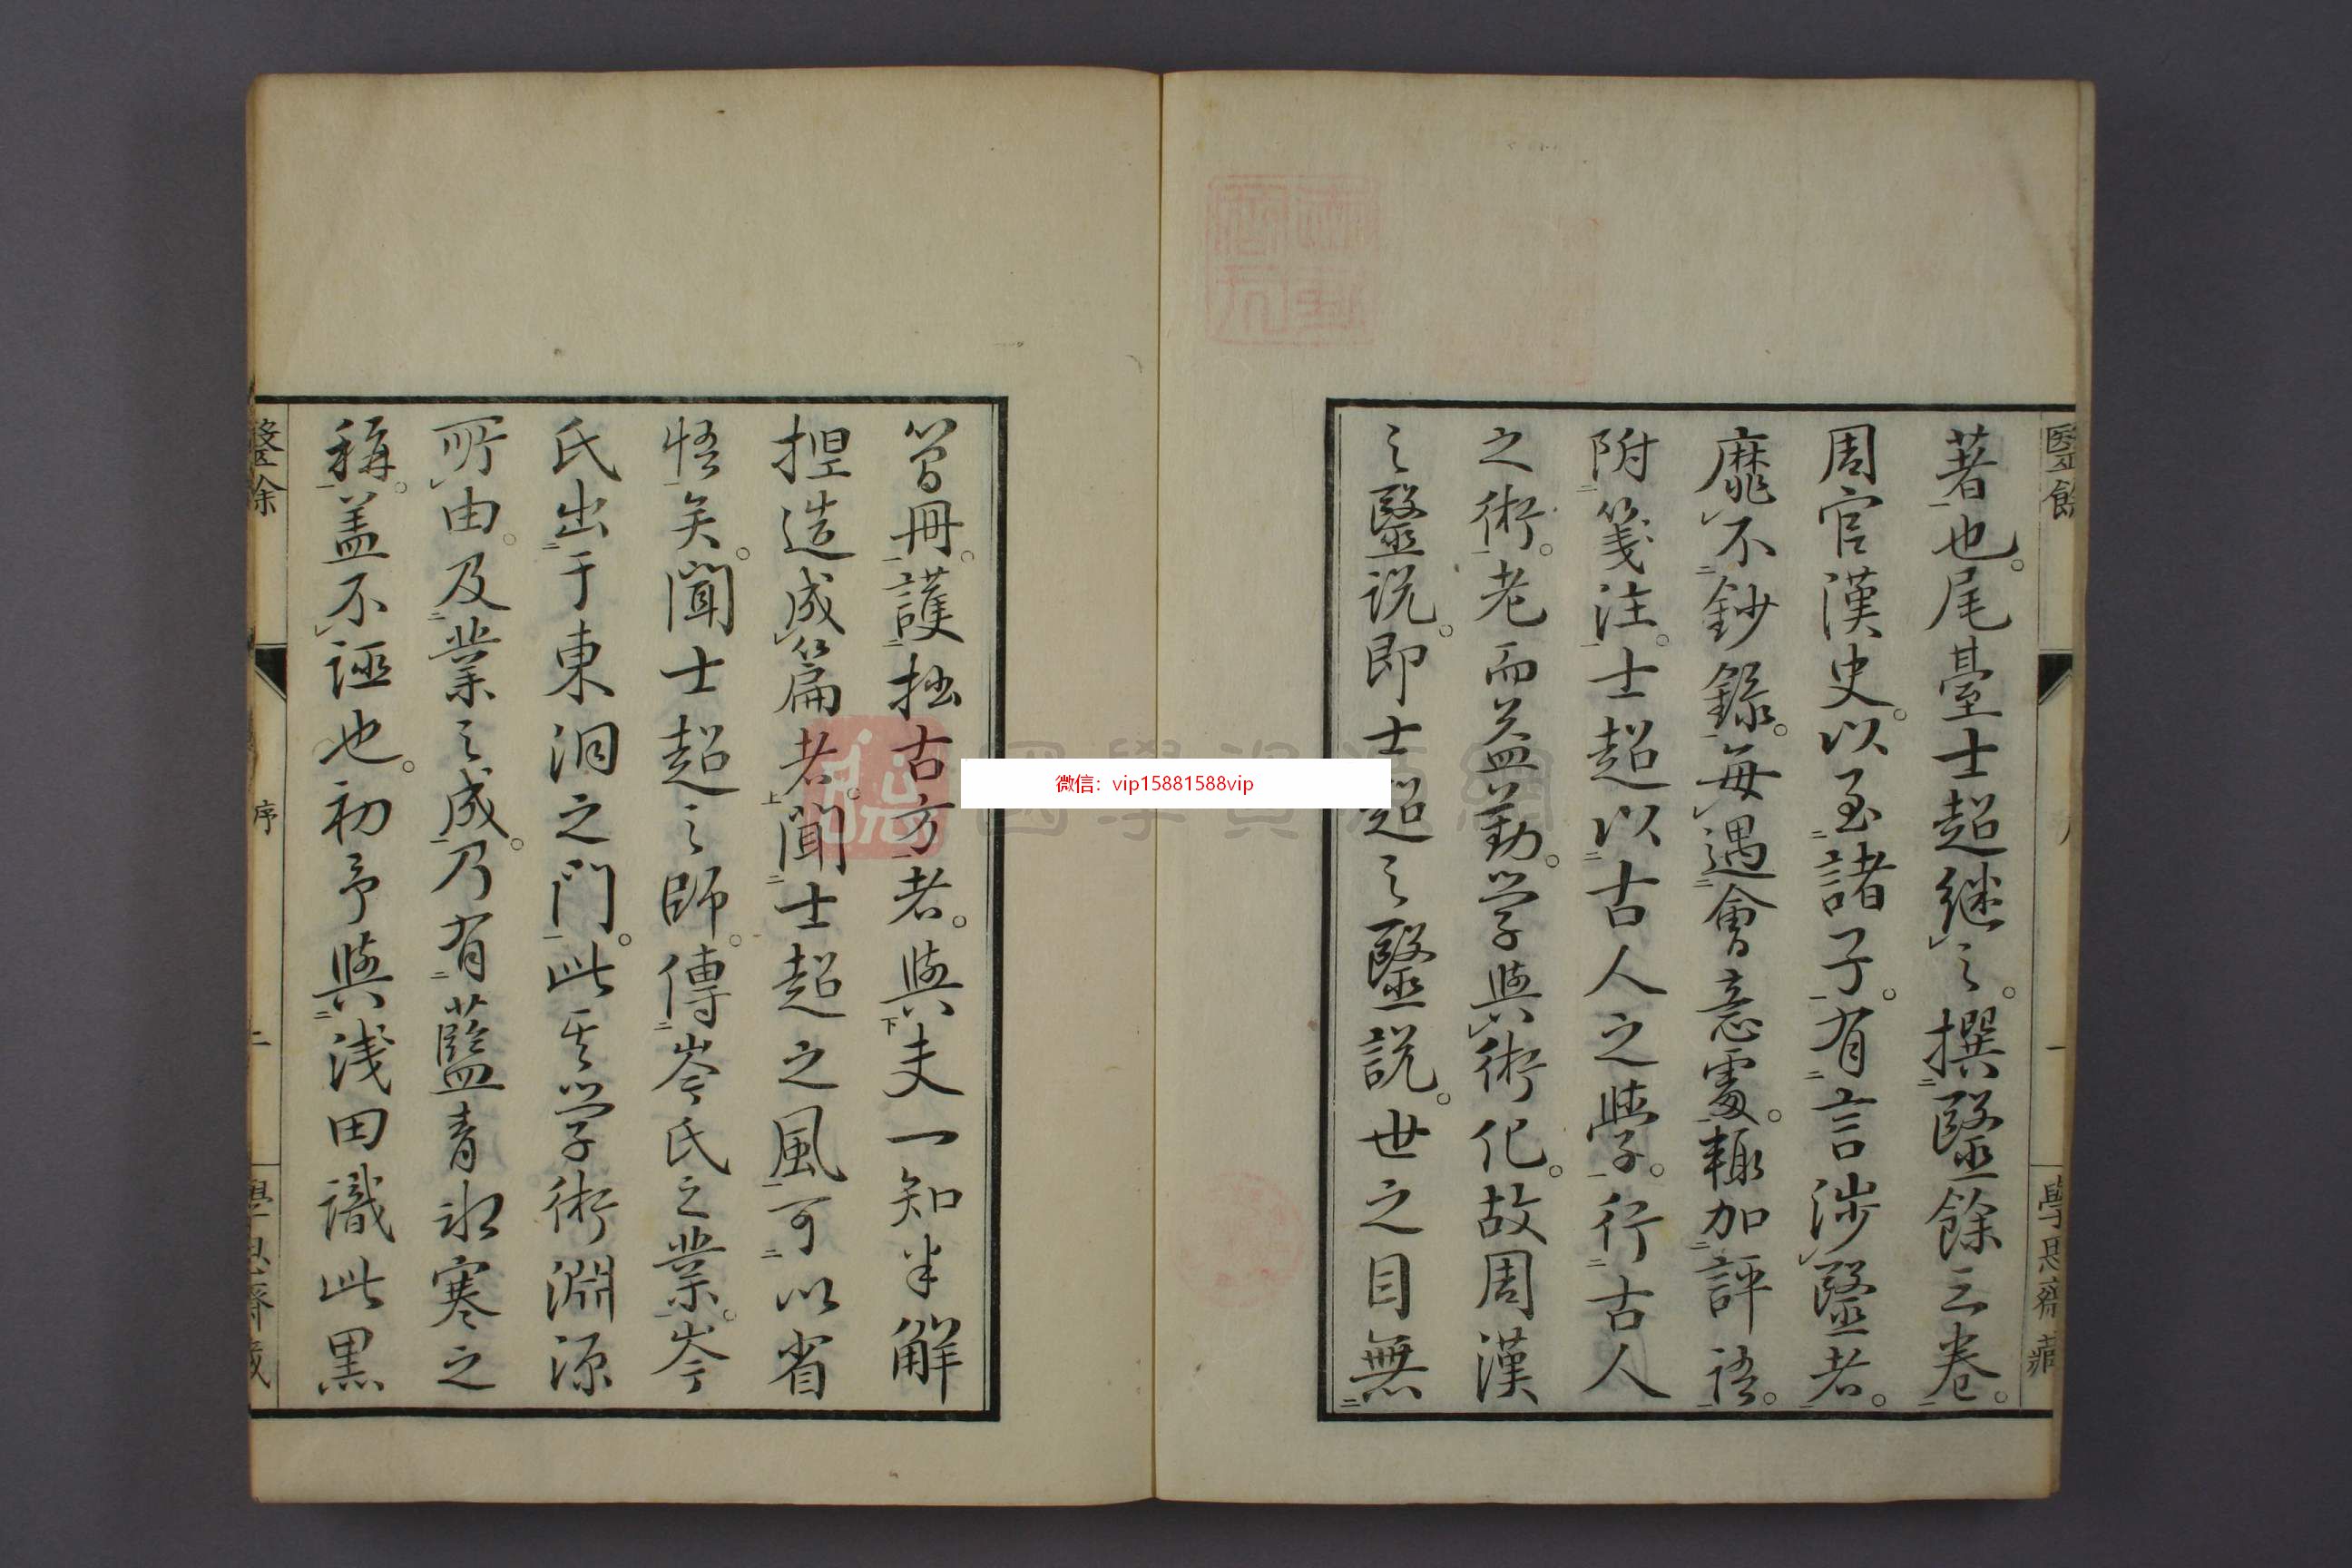 醫餘
一
學思齋藏
著也。尾臺士超繼之。撰醫餘三卷。
周官漢史。以至諸子。有言涉醫者。
靡不鈔錄。每遇會意處。輙加評語。
附箋注。士超以古人之學。行古人
之術。老而益勤。学與術化。故周漢
之醫説。即士超之醫説。世之目無
曽冊。護拙古方者。與夫一知半解
揑造成篇者。聞士超之風。可以省
悟矣。聞士超之師。傳岑氏之業。岑
氏出于東洞之門。此其学術淵源
所由。及業之成。乃有藍青氷寒之
稱。盖不誣也。初予與浅田識此黒
醫餘
序
二
學思齋藏
國學資源網
微信：vip15881588vip